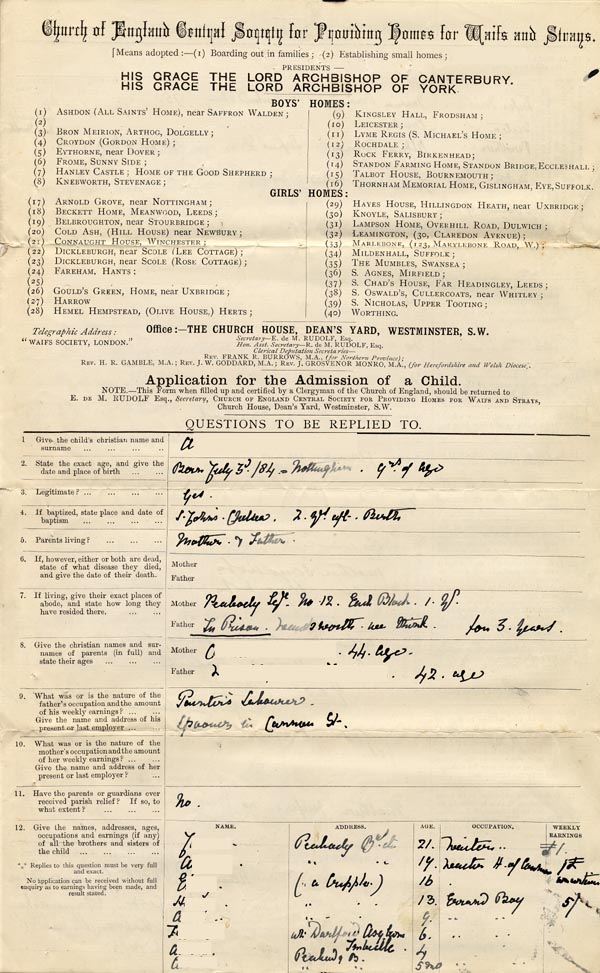 Church of England Central Society for Providing Homes for Waifs and Strays.
[Means adopted:—(1) Boarding out in families; (2) Establishing small homes;
PRESIDENTS —
HIS GRACE THE LORD ARCHBISHOP OF CANTERBURY.
HIS GRACE THE LORD ARCHBISHOP OF YORK.
BOYS' HOMES:
(1) ASHDON (ALL SAINTS' HOME), near SAFFRON WALDEN;
(2)
(3) BRON MEIRION, ARTHOG, DOLGELLY;
(4) CROYDON (GORDON HOME);
(5) EYTHORNE, near DOVER;
(6) FROME, SUNNY SIDE;
(7) HANLEY CASTLE; HOME OF THE GOOD SHEPHERD;
(8) KNEBWORTH, STEVENAGE;
(9) KINGSLEY HALL, FRODSHAM;
(10) LEICESTER;
(11) LYME REGIS (S. MICHAEL'S HOME;
(12) ROCHDALE;
(13) ROCK FERRY, BIRKENHEAD;
(14) STANDON FARMING HOME, STANDON BRIDGE, ECCLESHALL;
(15) TALBOT HOUSE, BOURNEMOUTH;
(16) THORNHAM MEMORIAL HOME, GISLINGHAM, EYE, SUFFOLK.
GIRLS' HOMES:
(17) ARNOLD GROVE, near NOTTINGHAM;
(18) BECKETT HOME, MEANWOOD, LEEDS;
(19) BELBROUGHTON, near STOURBRIDGE;
(20) COLD ASH, (HILL HOUSE) near NEWBURY;
(21) CONNAUGHT HOUSE, WINCHESTER;
(22) DICKLEBURGH, near SCOLE (LEE COTTAGE);
(23) DICKLEBURGH, near SCOLE (ROSE COTTAGE);
(24) FAREHAM, HANTS:
(25)
(26) GOULD'S GREEN, HOME, near UXBRIDGE;
(27) HARROW
(28) HEMEL HEMPSTEAD, (OLIVE HOUSE,) HERTS;
(29) HAYES HOUSE, HILLINGDON HEATH, near UXBRIDGE;
(30) KNOYLE, SALISBURY;
(31) LAMPSON HOME, OVERHILL ROAD, DULWICH;
(32) LEAMINGTON, (30, CLAREDON AVENUE);
(33) MARLEBONE, (123, MARYLEBONE ROAD, W.);
(34) MILDENHALL, SUFFOLK;
(35) THE MUMBLES, SWANSEA;
(36) S. AGNES, MIRFIELD;
(37) S. CHAD'S HOUSE, FAR HEADINGLEY, LEEDS;
(38) S. OSWALD'S, CULLERCOATS, near WHITLEY;
(39) S. NICHOLAS, UPPER TOOTING;
(40) WORTHING.
Telegraphic Address:
"WAIFS SOCIETY, LONDON."
Office:—THE CHURCH HOUSE, DEAN'S YARD, WESTMINSTER, S.W.
Secretary—E. de M. RUDOLF, Esq.
Hon. Asst. Secretary—R. de M. RUDOLF, Esq.
Clerical Deputation Secretaries—
REV. FRANK R. BURROWS, M.A., (for Northern Province);
REV. H. R. GAMBLE, M.A.; REV. J. W. GODDARD, M.A.; REV. J. GROSVENOR MONRO, M.A., (for Herefordshire and Welsh Diocese).
Application for the Admission of a Child.
NOTE.—This Form when filled up and certified by a Clergyman of the Church of England, should be returned to
E. DE M. RUDOLF Esq., Secretary, CHURCH OF ENGLAND CENTRAL SOCIETY FOR PROVIDING HOMES FOR WAIFS AND STRAYS,
Church House, Dean's Yard, Westminster, S.W.
QUESTIONS TO BE REPLIED TO.
1 Give the child's christian name and
surname ... ... ... ...
A
2. State the exact age, and give the
date and place of birth ... ...
Born July 3d /84 = Nottingham. 9 yrs of age
3. Legitimate? ... ... ... ...
Yes.
4. If baptized, state place and date of
baptism ... ... ... ...
S. John's. Chelsea. 2 yrs aft. Birth
5. Parents living? ... ... ...
Mother & Father.
6. If, however, either or both are dead,
state of what disease they died,
and give the date of their death.
Mother
Father
7. If living, give their exact places of
abode, and state how long they
have resided there. ... ...
Mother Peabody Sqr. No 12. Each Block. 1. yr.
Father In Prison. worth. for 3 years.
8. Give the christian names and sur-
names of parents (in full) and
state their ages ... ...
Mother C . 44. age.
Father 42. age
9. What was or is the nature of the
father's occupation and the amount
of his weekly earnings? ...
Give the name and address of his
present or last employer? ...
Painter's Labourer.
Spooners in Cannon St.
10. What was or is the nature of the
mother's occupation and the amount
of her weekly earnings? ... ...
Give the name and address of her
present or last employer? ...
11. Have the parents or guardians ever
received parish relief? If so, to
what extent? ... ... ...
No.
12. Give the names, addresses, ages,
occupations and earnings (if any)
of all the brothers and sisters of
the child ... ... ...
*** Replies to this question must be very full
and exact.
No application can be received without full
enquiry as to earnings having been made, and
result stated.
NAME. ADDRESS. AGE. OCCUPATION. WEEKLY EARNINGS
Peabody 21. £1.
A " " 19.
E (a Cripple) 16
H " " 13. Errand Boy 5/
A " " 9. " "
Dartford Asylum 6. " "
Imbecile
A Peabody B. 4 " "
A " " 5 mo " "